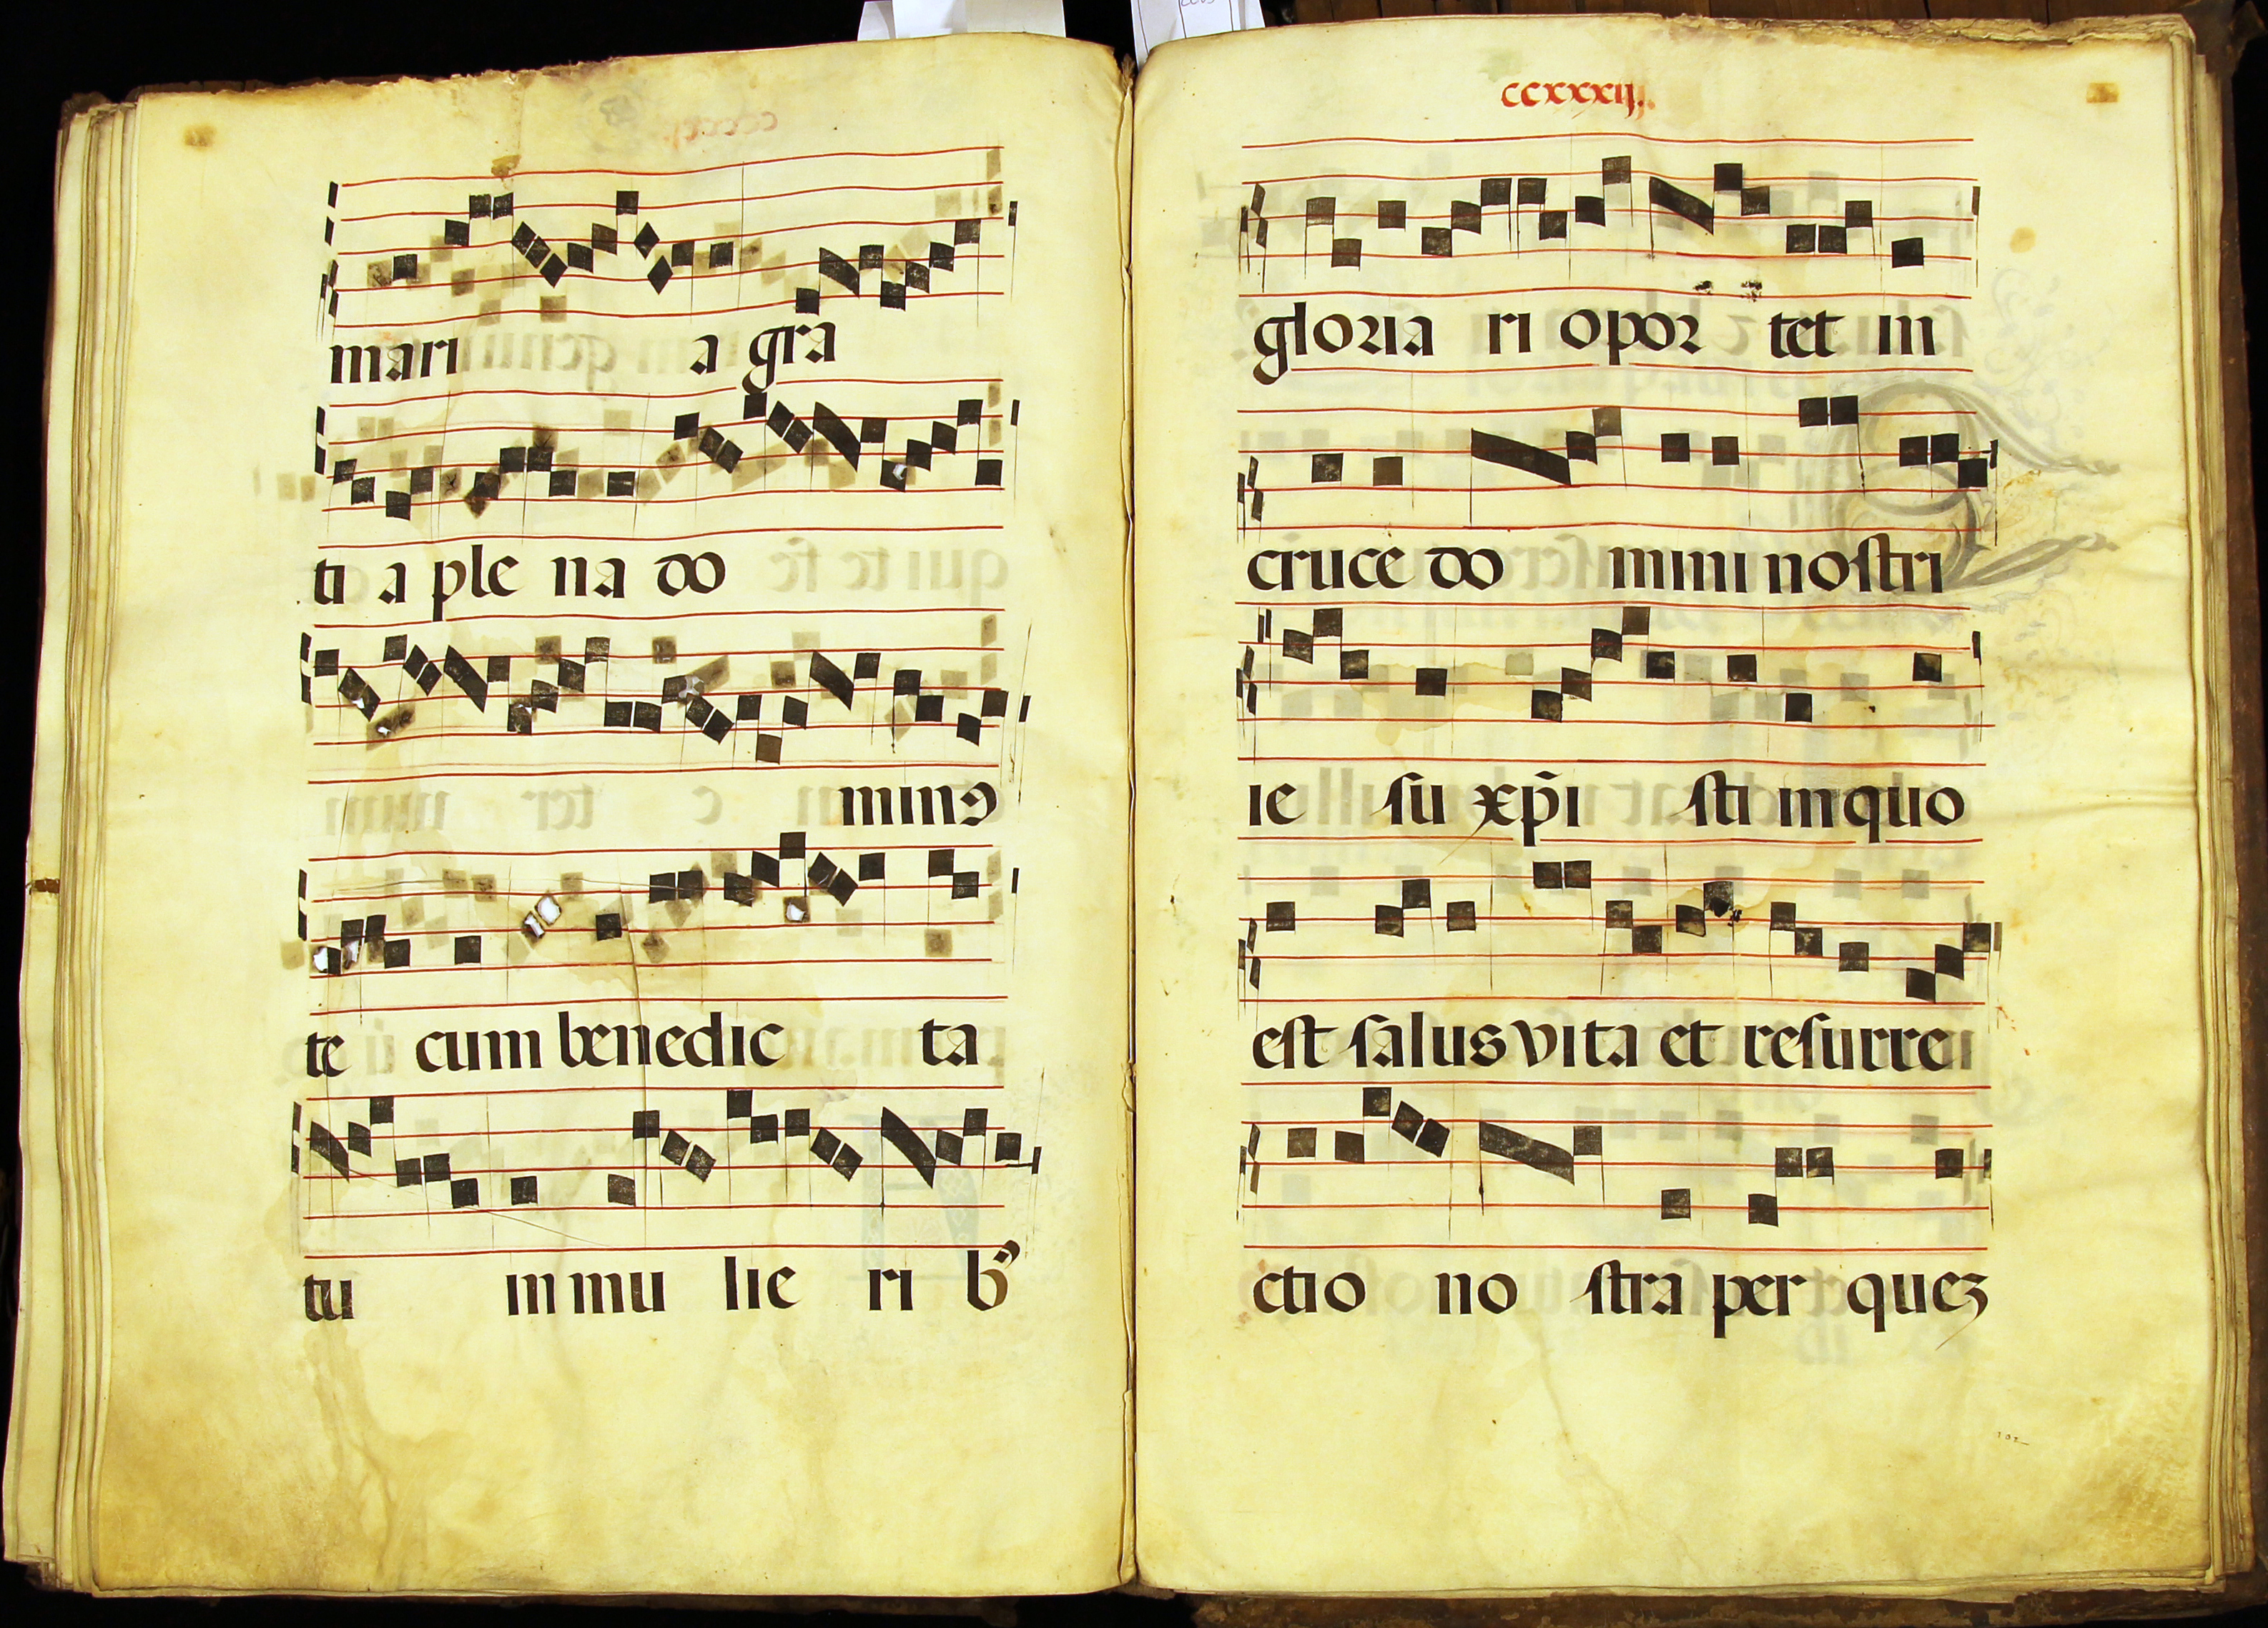 mari a gra
ti a ple na do
minꝯ
te cum benedic ta
tu in mu lie ri bꝰ
ccxxxij.
gloria ri opor tet in
cruce do mini nostri
ie su xp̄i sti in quo
est salus vita et resurre
ctio no stra per queʒ
102